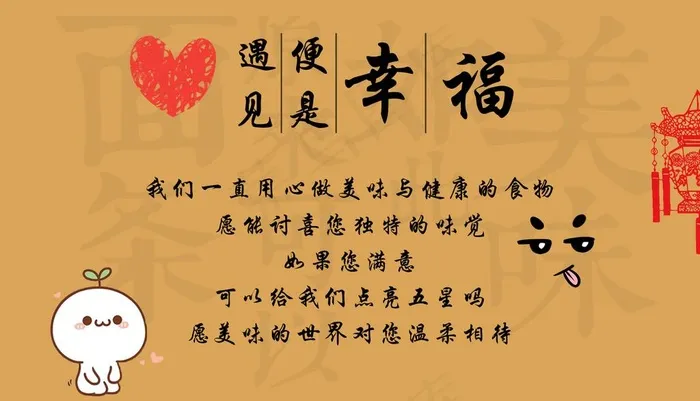 遇见
便是
幸福
我们一直用心做美味与健康的食物
愿能讨喜您独特的味觉
如果您满意
可以给我们点亮五星吗
愿美味的世界对您温柔相待
面条
美味